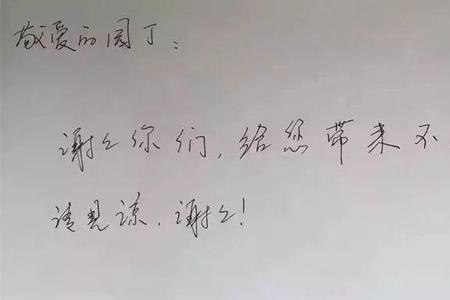 敬爱的园丁：
谢谢你们，给您带来不
请见谅，谢谢！